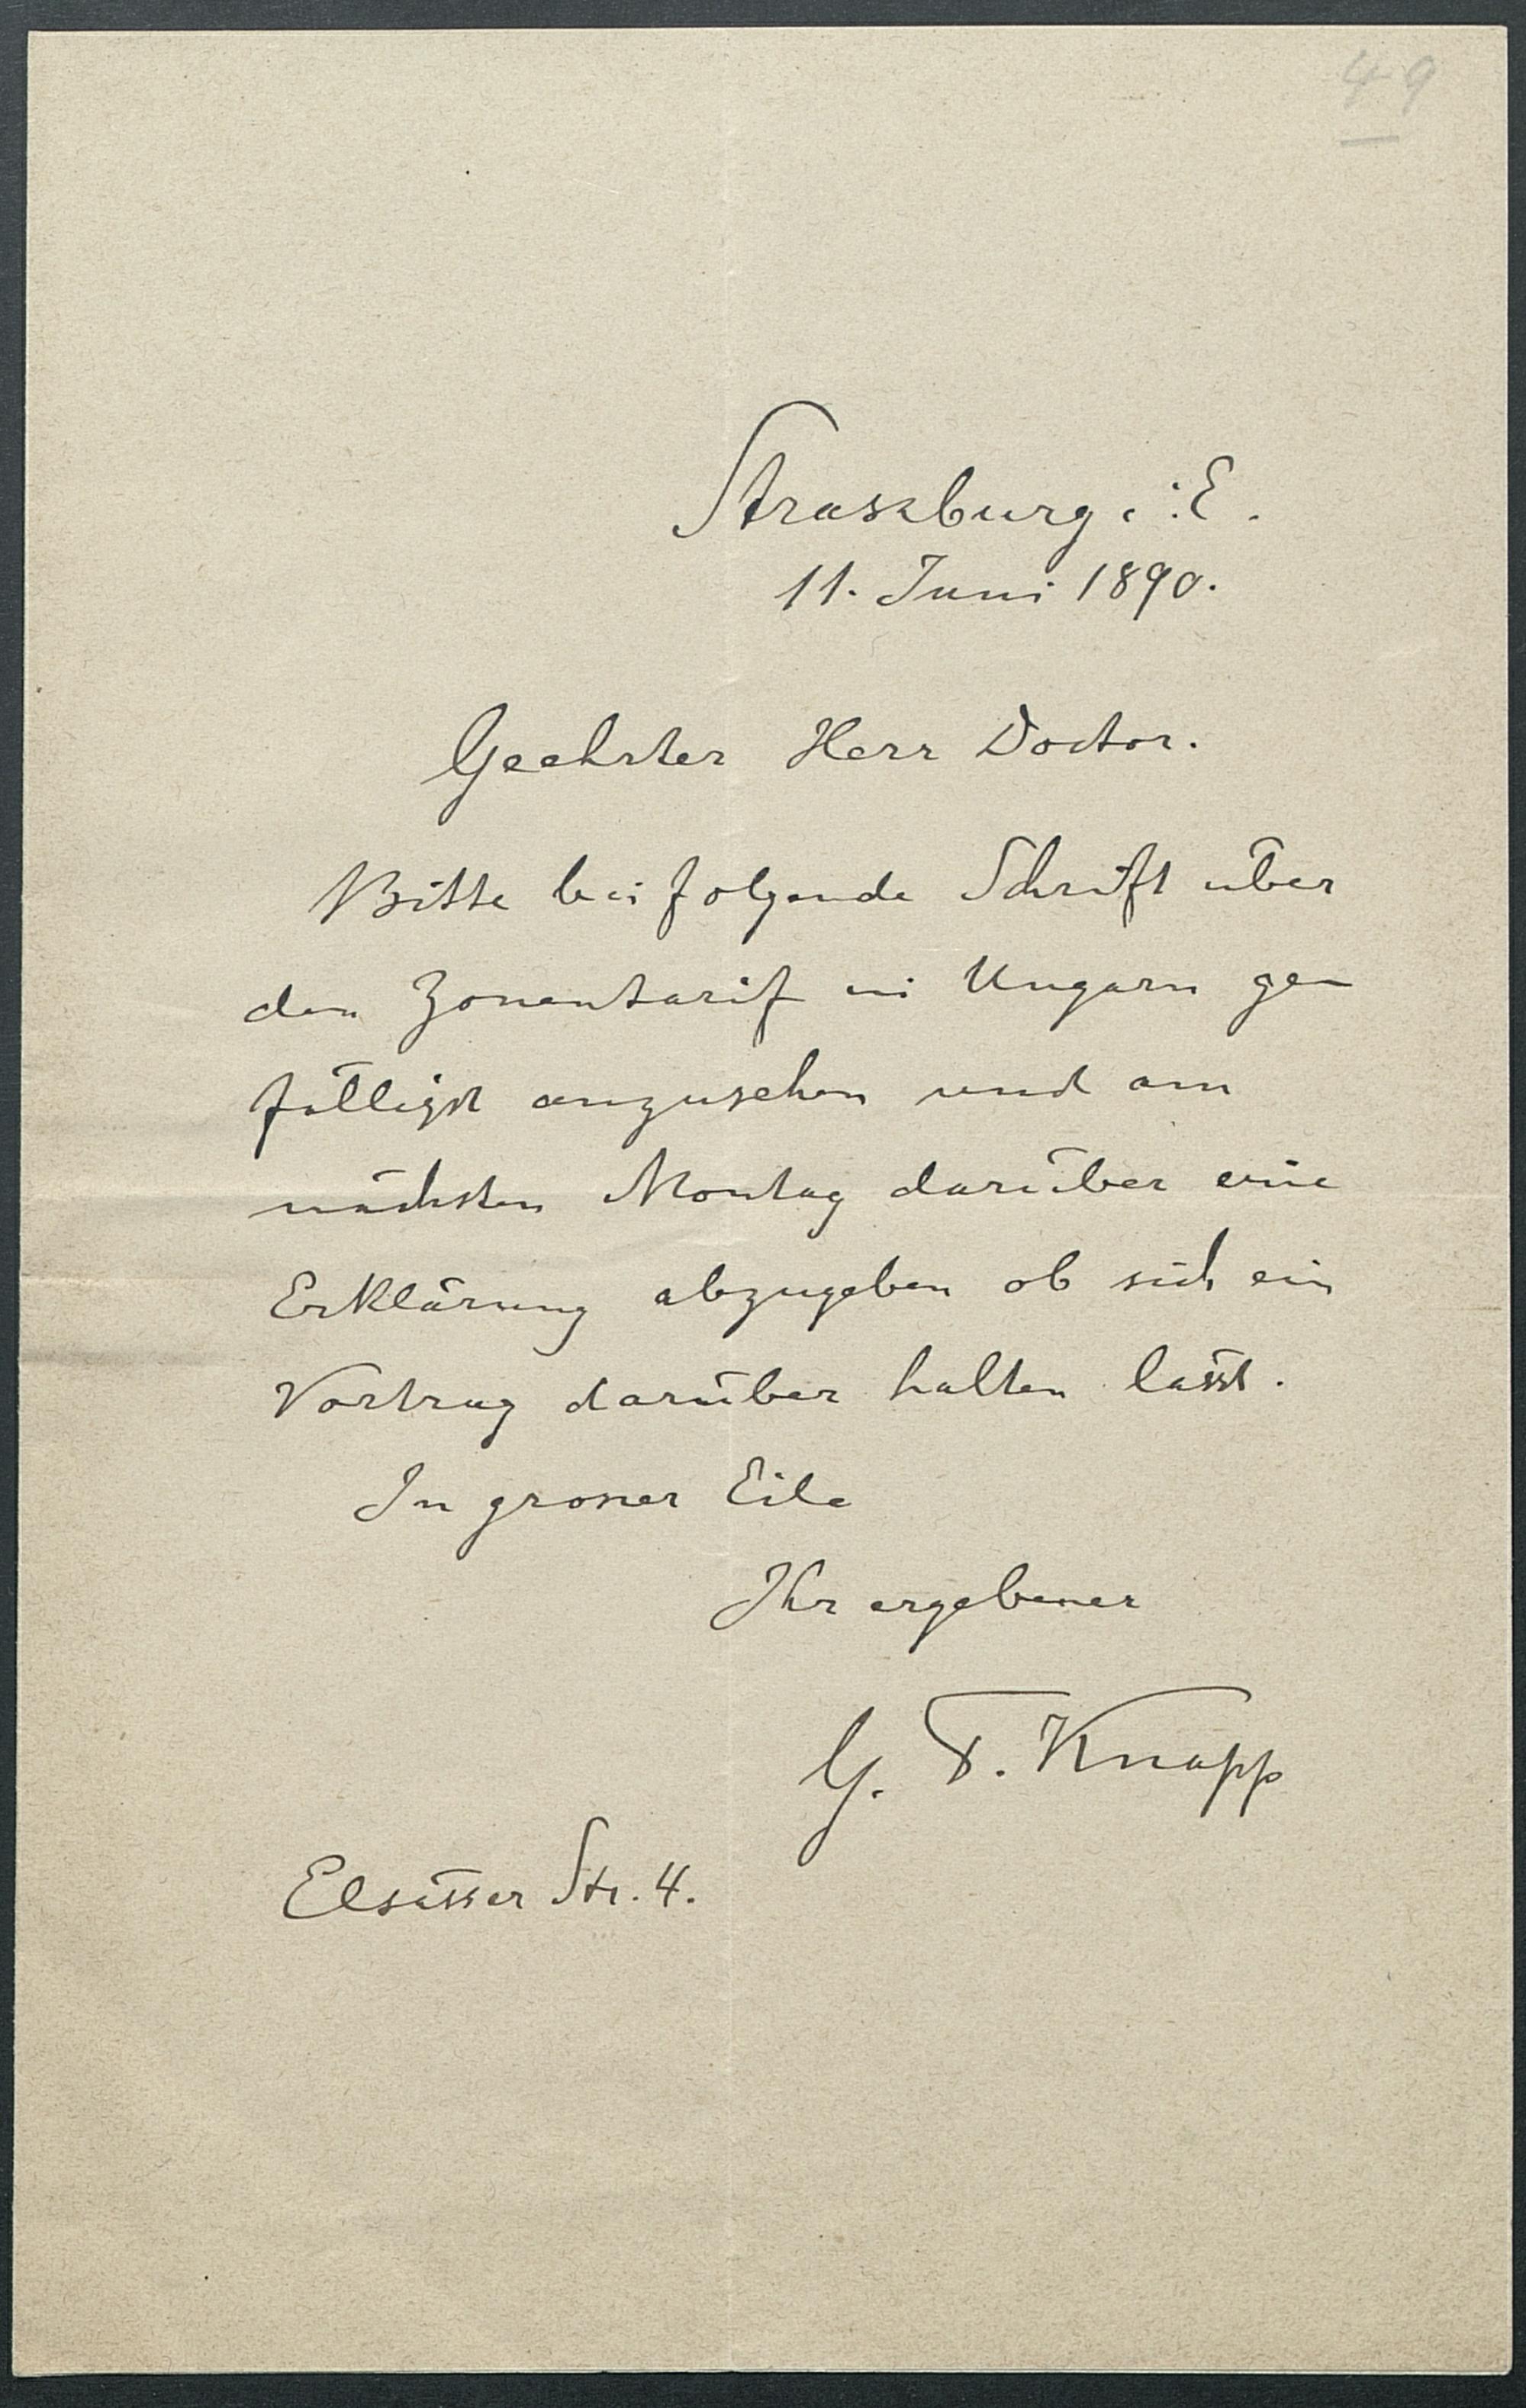 49
Straszburg i. E.
11. Juni 1890.
Geehrter Herr Doctor.
Bitte beifolgende Schrift über
den Zonentarif in Ungarn ge-
fälligst anzusehen und am
nächsten Montag darüber eine
Erklärung abzugeben ob sich ein
Vortrag darüber halten lässt.
In grosser Eile
Ihr ergebener
G. F. Knapp
Elsässer Str. 4.